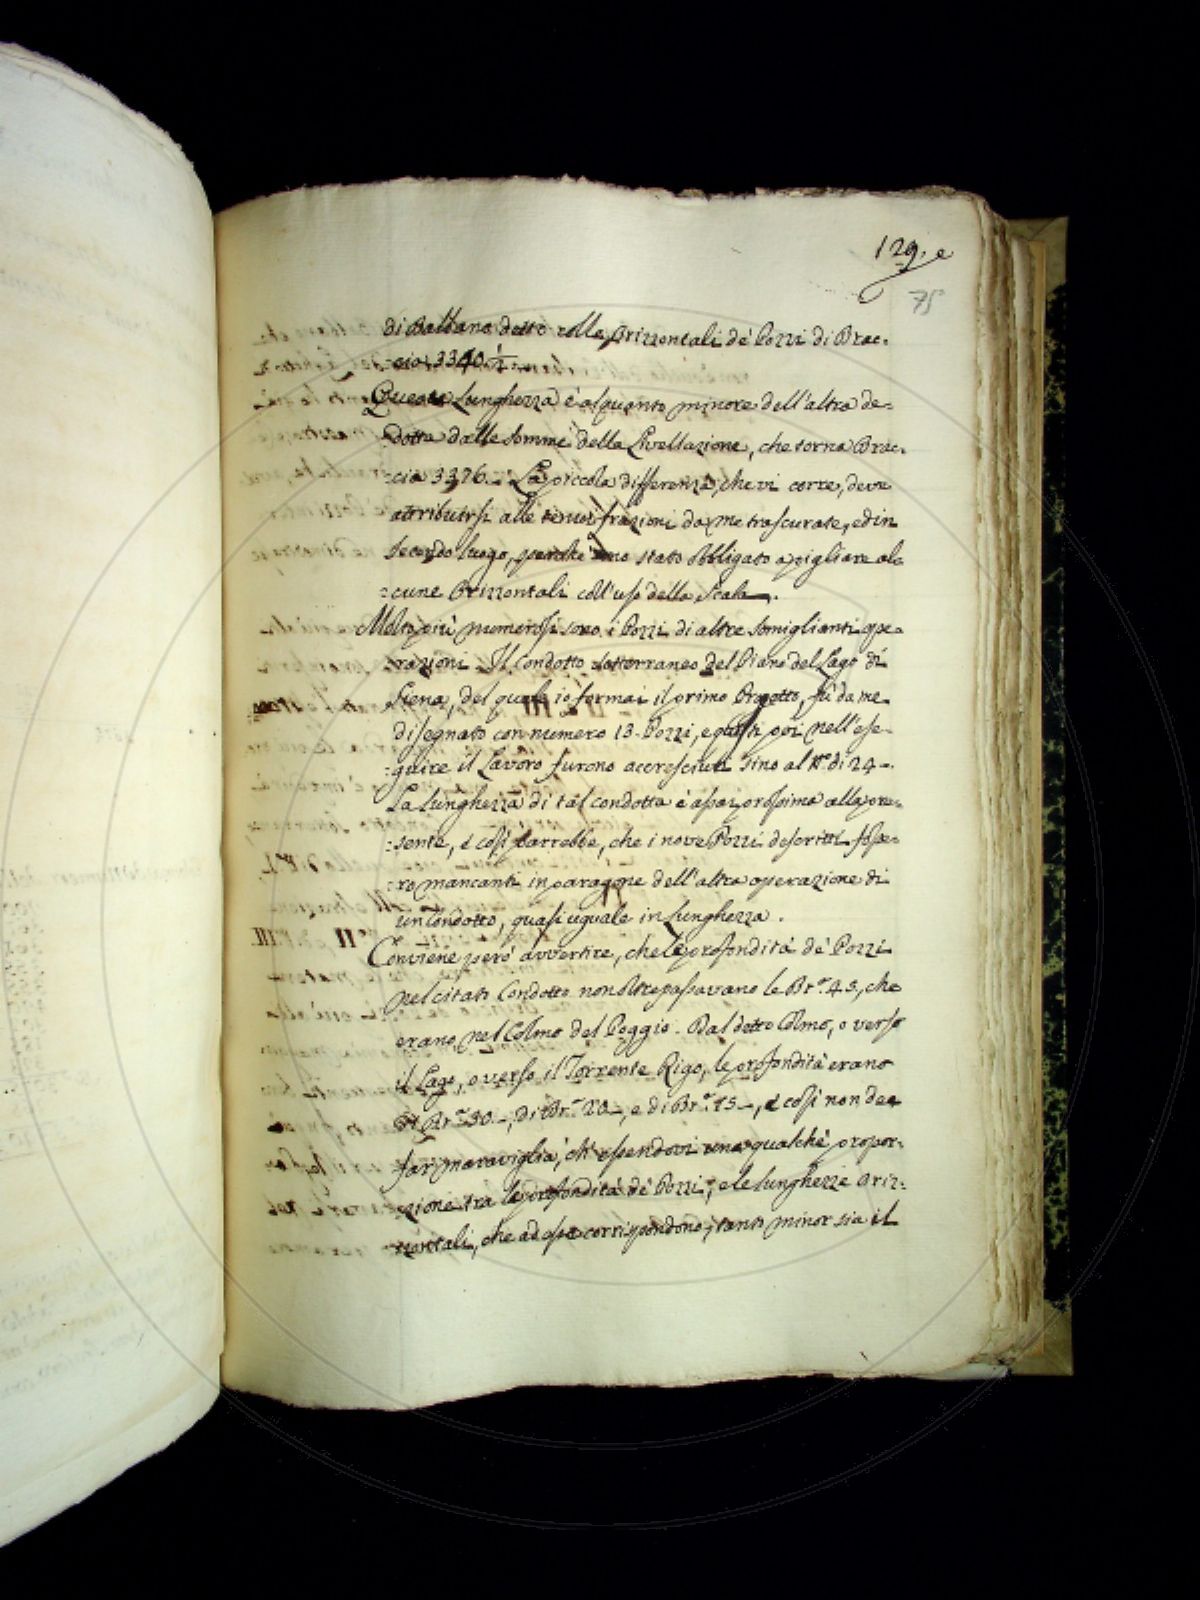 129. e
75
di Balbano detto colle Orizzontali de' Pozzi di Brac=
=cia 3340 ½
Questa Lunghezza è alquanto minore dell'altra de=
=dotta dalle somme della Livellazione, che torna Brac=
=cia 3376. La piccola differenza, che vi corre, deve
attribuirsi alle tenui frazioni da me trascurate, ed in
secondo luogo, perchè sono stato obbligato a pigliare al=
=cune Orizzontali coll'uso della Scala.
Molto più numerosi sono i Pozzi di altre somiglianti ope=
=razioni. Il Condotto sotterraneo del Piano del Lago di
Siena, del quale io formai il primo Progetto, fù da me
disegnato con numero 13. Pozzi, e questi poi nell'ese=
=guire il Lavoro furono accresciuti sino al N.º di 24 -.
La lunghezza di tal condotta è assai prossima alla pre=
=sente, e così parrebbe, che i nove Pozzi descritti fosse=
=ro mancanti in paragone dell'altra operazione di
un Condotto, quasi uguale in Lunghezza.
Conviene però avvertire, che le profondità de' Pozzi
nel citato Condotto non oltrepassavano le Br.ª 45, che
erano nel Colmo del Poggio. Dal detto Colmo, o verso
il Lago, o verso il Torrente Rigo, le profondità erano
di Br.ª 30 -, di Br.ª 20 -, e di Br.ª 15 -, e così non dee
far maraviglia, ch'essendovi una qualche propor=
=zione tra le profondità de' Pozzi, e le lunghezze Oriz=
=zontali, che ad esse corrispondono, tanto minor sia il